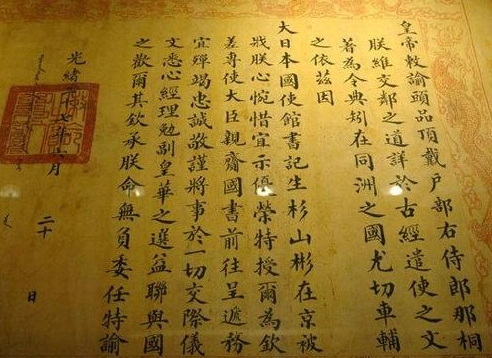 皇帝敕諭頭品頂戴戶部右侍郎那桐
朕維交鄰之道詳於古經遣使之文
著為令典矧在同洲之國尤切車輔
之依茲因
大日本國使館書記生杉山彬在京被
戕朕心惋惜宜示優榮特授爾為欽
差專使大臣親齎國書前往呈遞務
宜殫竭忠誠敬謹將事於一切交際儀
文悉心經理勉副皇華之選益聯與國
之歡爾其欽承朕命無負委任特諭
光緒七年六月二十日